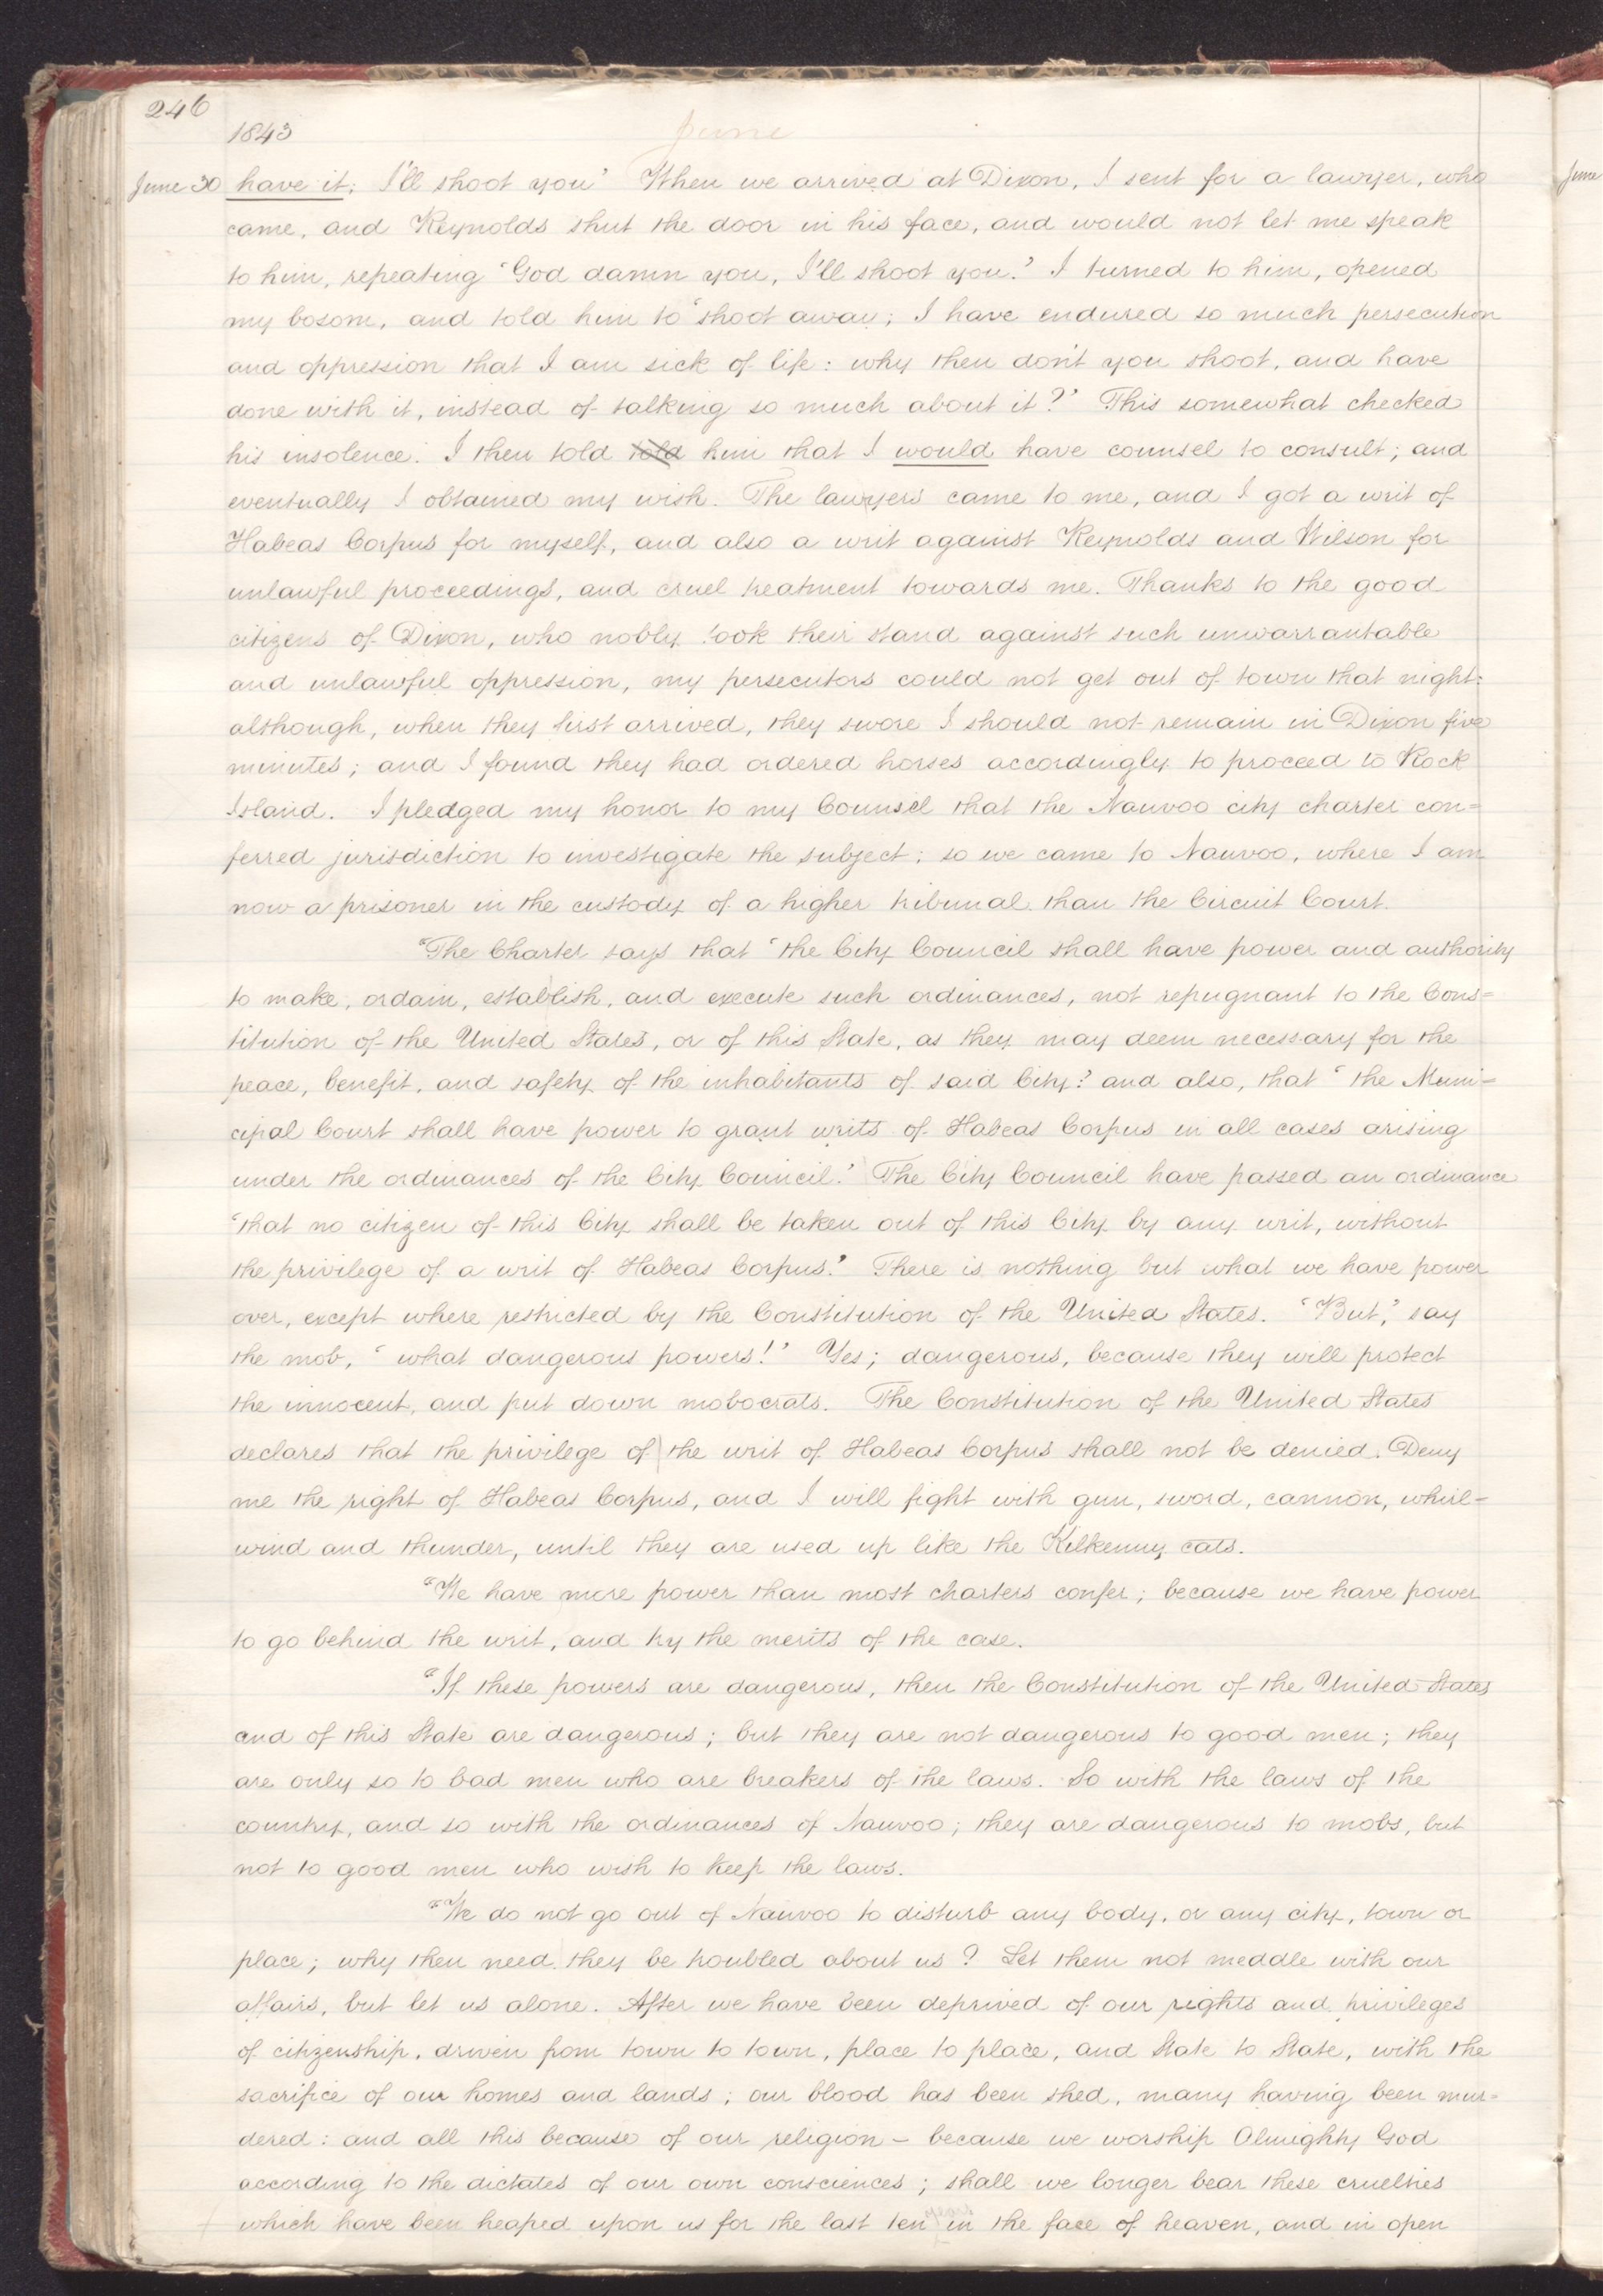 246
1843
June
June 30 have it; I'll shoot you' When we arrived at Dixon, I sent for a lawyer, who
June
came, and Reynolds shut the door in his face, and would not let me speak
to him, repeating 'God damn you, I'll shoot you.' I turned to him, opened
my bosom, and told him to 'shoot away; I have endured so much persecution
and oppression that I am sick of life: why then don't you shoot, and have
done with it, instead of talking so much about it?' This somewhat checked
his insolence. I then told told him that I would have counsel to consult; and
eventually I obtained my wish. The lawyers came to me, and I got a writ of
Habeas Corpus for myself, and also a writ against Reynolds and Wilson for
unlawful proceedings, and cruel treatment towards me. Thanks to the good
citizens of Dixon, who nobly took their stand against such unwarrantable
and unlawful oppression, my persecutors could not get out of town that night:
although, when they first arrived, they swore I should not remain in Dixon five
minutes; and I found they had ordered horses accordingly to proceed to Rock
Island. I pledged my honor to my Counsel that the Nauvoo city charter con=
ferred jurisdiction to investigate the subject; so we came to Nauvoo, where I am
now a prisoner in the custody of a higher tribunal than the Circuit Court.
"The Charter says that 'the City Council shall have power and authority
to make, ordain, establish, and execute such ordinances, not repugnant to the Cons=
titution of the United States, or of this State, as they may deem necessary for the
peace, benefit, and safety of the inhabitants of said City.' and also, that 'the Muni=
cipal Court shall have power to grant writs of Habeas Corpus in all cases arising
under the ordinances of the City Council.' The City Council have passed an ordinance
'that no citizen of this City shall be taken out of this City by any writ, without
the privilege of a writ of Habeas Corpus.' There is nothing but what we have power
over, except where restricted by the Constitution of the United States. 'But,' say
the mob, 'what dangerous powers!' Yes; dangerous, because they will protect
the innocent, and put down mobocrats. The Constitution of the United States
declares that the privilege of the writ of Habeas Corpus shall not be denied. Deny
me the right of Habeas Corpus, and I will fight with gun, sword, cannon, whirl-
wind and thunder, until they are used up like the Kilkenny cats.
"We have more power than most charters confer; because we have power
to go behind the writ, and try the merits of the case.
"If these powers are dangerous, then the Constitution of the United States
and of this State are dangerous; but they are not dangerous to good men; they
are only so to bad men who are breakers of the laws. So with the laws of the
country, and so with the ordinances of Nauvoo; they are dangerous to mobs, but
not to good men who wish to keep the laws.
"We do not go out of Nauvoo to disturb any body, or any city, town or
place; why then need they be troubled about us? Let them not meddle with our
affairs, but let us alone. After we have been deprived of our rights and privileges
of citizenship, driven from town to town, place to place, and State to State, with the
sacrifice of our homes and lands; our blood has been shed, many having been mur=
dered: and all this because of our religion – because we worship Almighty God
according to the dictates of our own consciences; shall we longer bear these cruelties
which have been heaped upon us for the last ten years in the face of heaven, and in open